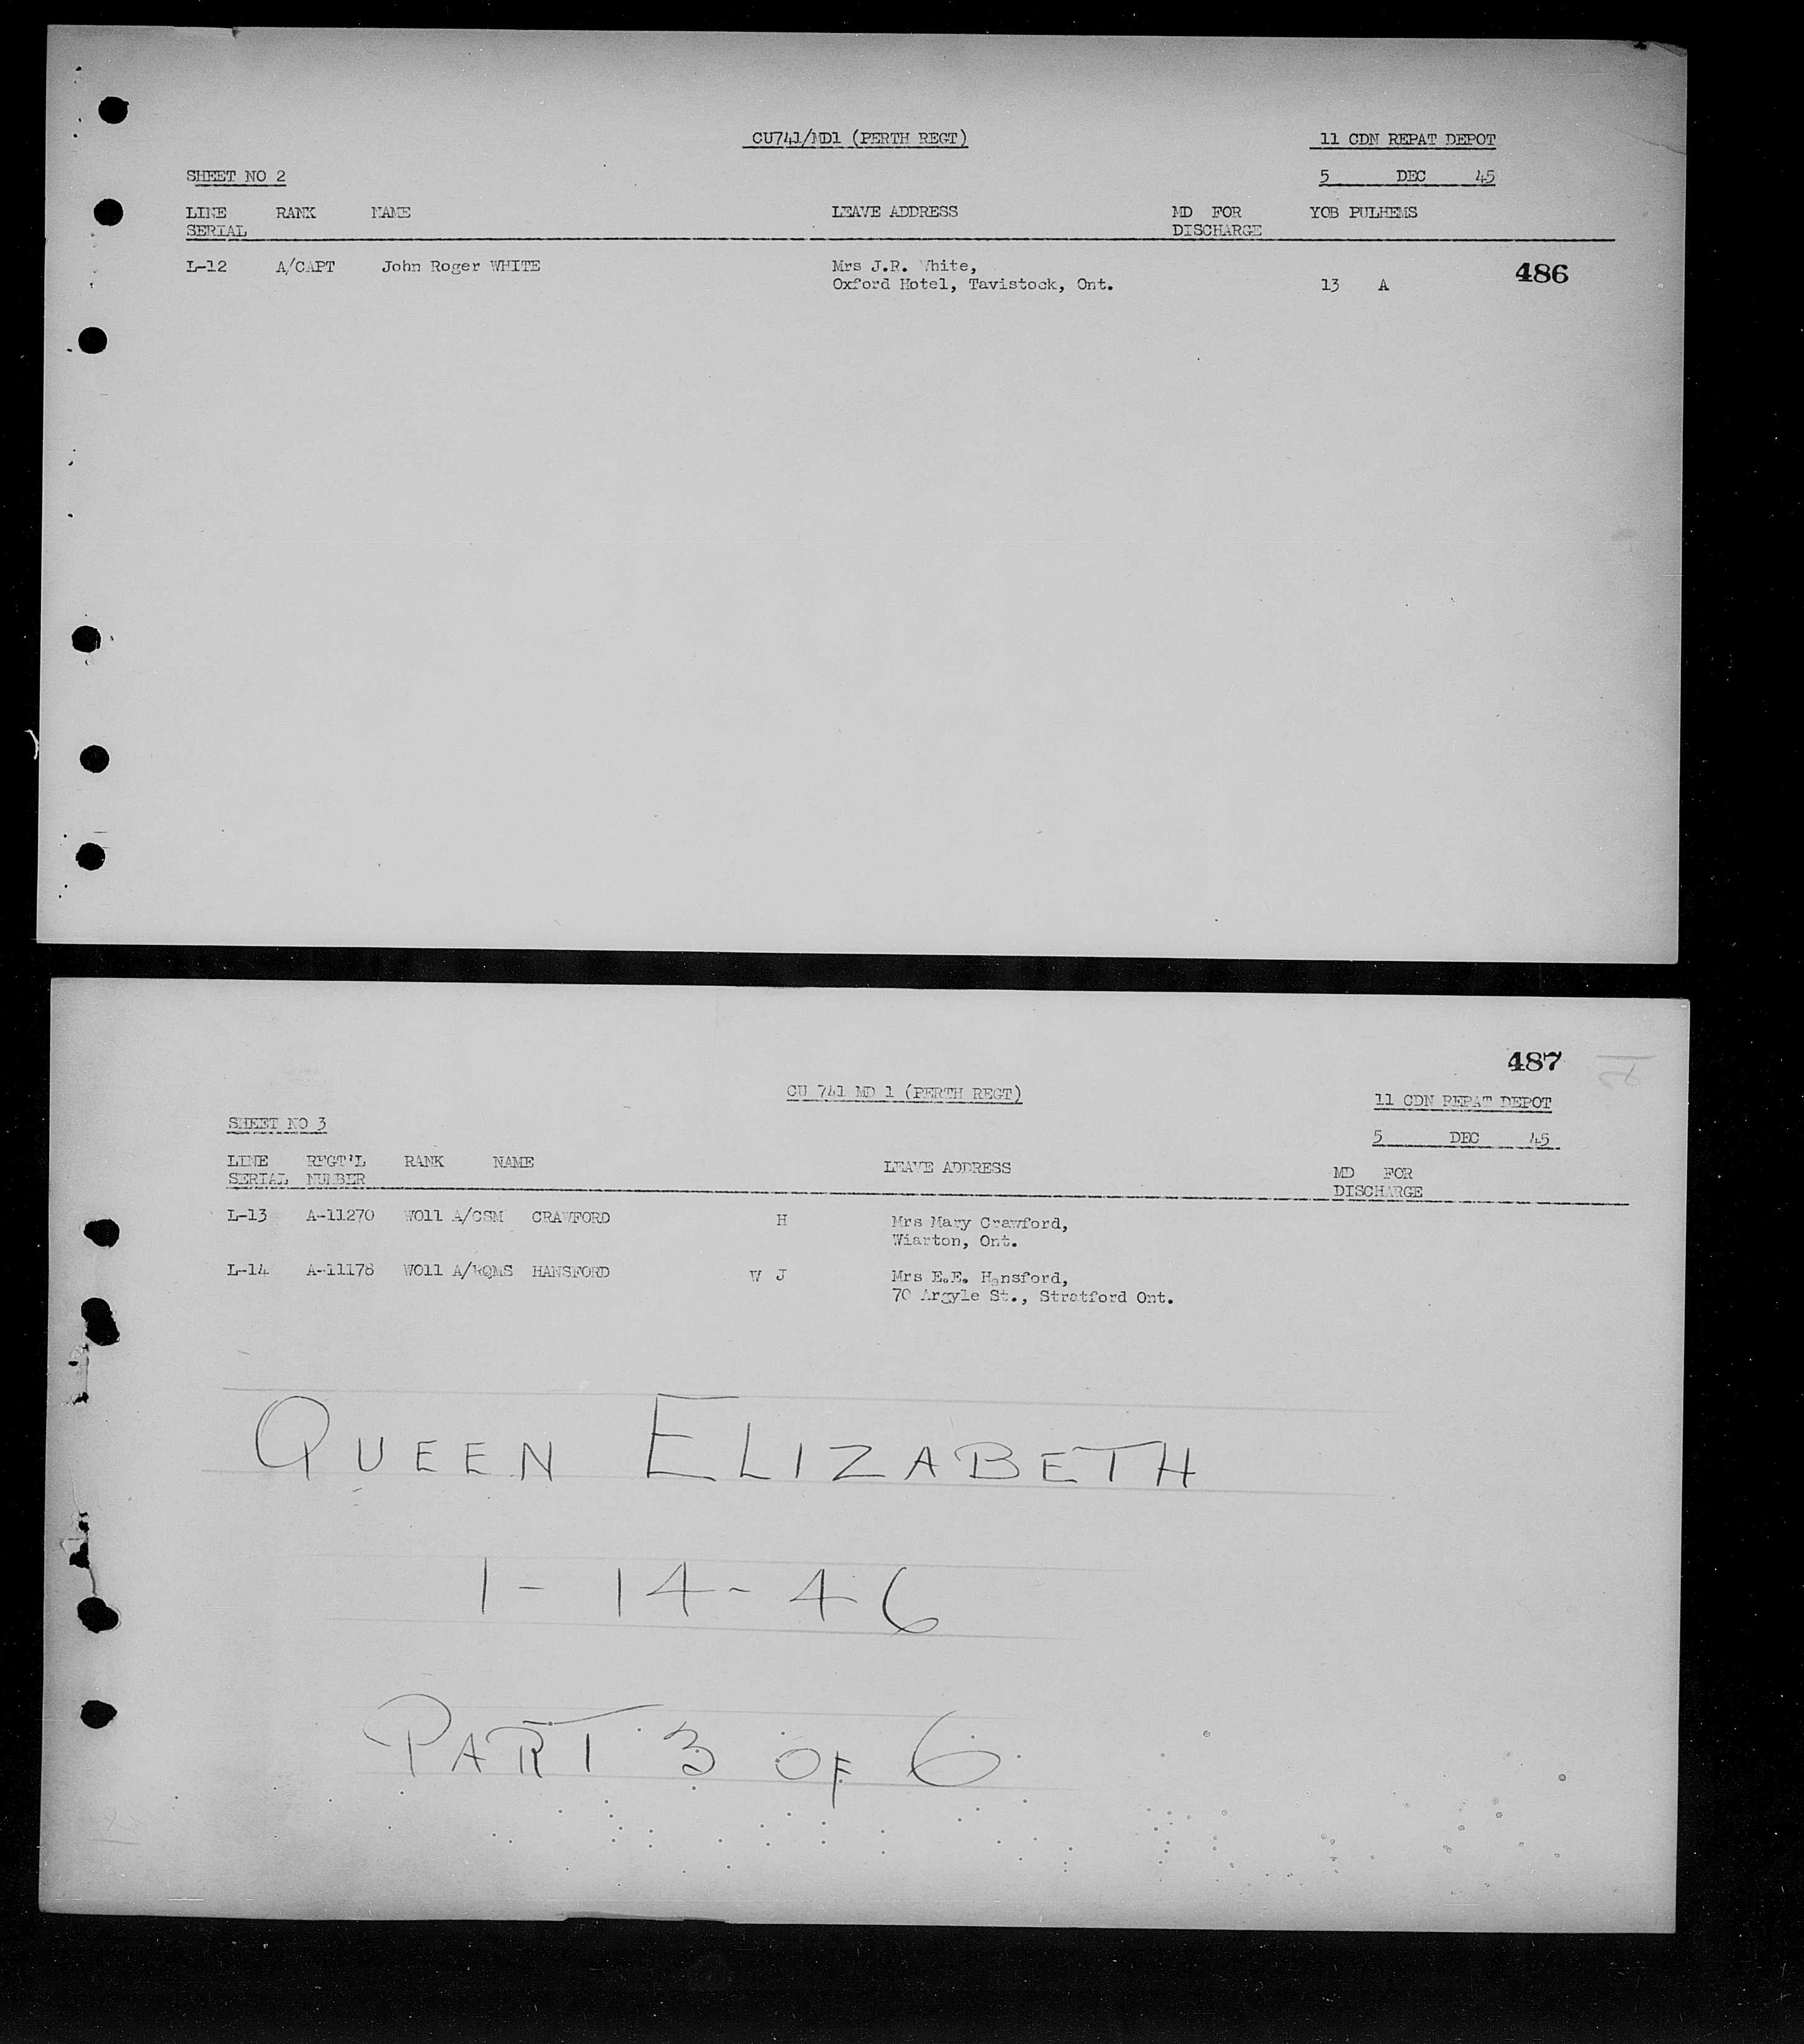 CU741/MD1 (PERTH REGT) 11 CDN REPAT DEPOT
SHEET NO 2 5 DEC 45
LINE RANK NAME LEAVE ADDRESS MD FOR YOB PULHEMS
SERIAL DISCHARGE
L-12 A/CAPT John Roger WHITE Mrs J.R. White, 486
Oxford Hotel, Tavistock, Ont. 13 A
487
CU 741 MD 1 (PERTH REGT) 11 CDN REPAT DEPOT
SHEET NO 3 5 DEC 45
LINE REGT'L RANK NAME LEAVE ADDRESS MD FOR
SERIAL NUMBER DISCHARGE
L-13 A-11270 WO11 A/CSM CRAWFORD H Mrs Mary Crawford,
Wiarton, Ont.
L-14 A-11178 WO11 A/RQMS HANSFORD W J Mrs E.E. Hansford,
70 Argyle St., Stratford Ont.
QUEEN ELIZABETH
1-14-46
PART 3 OF 6